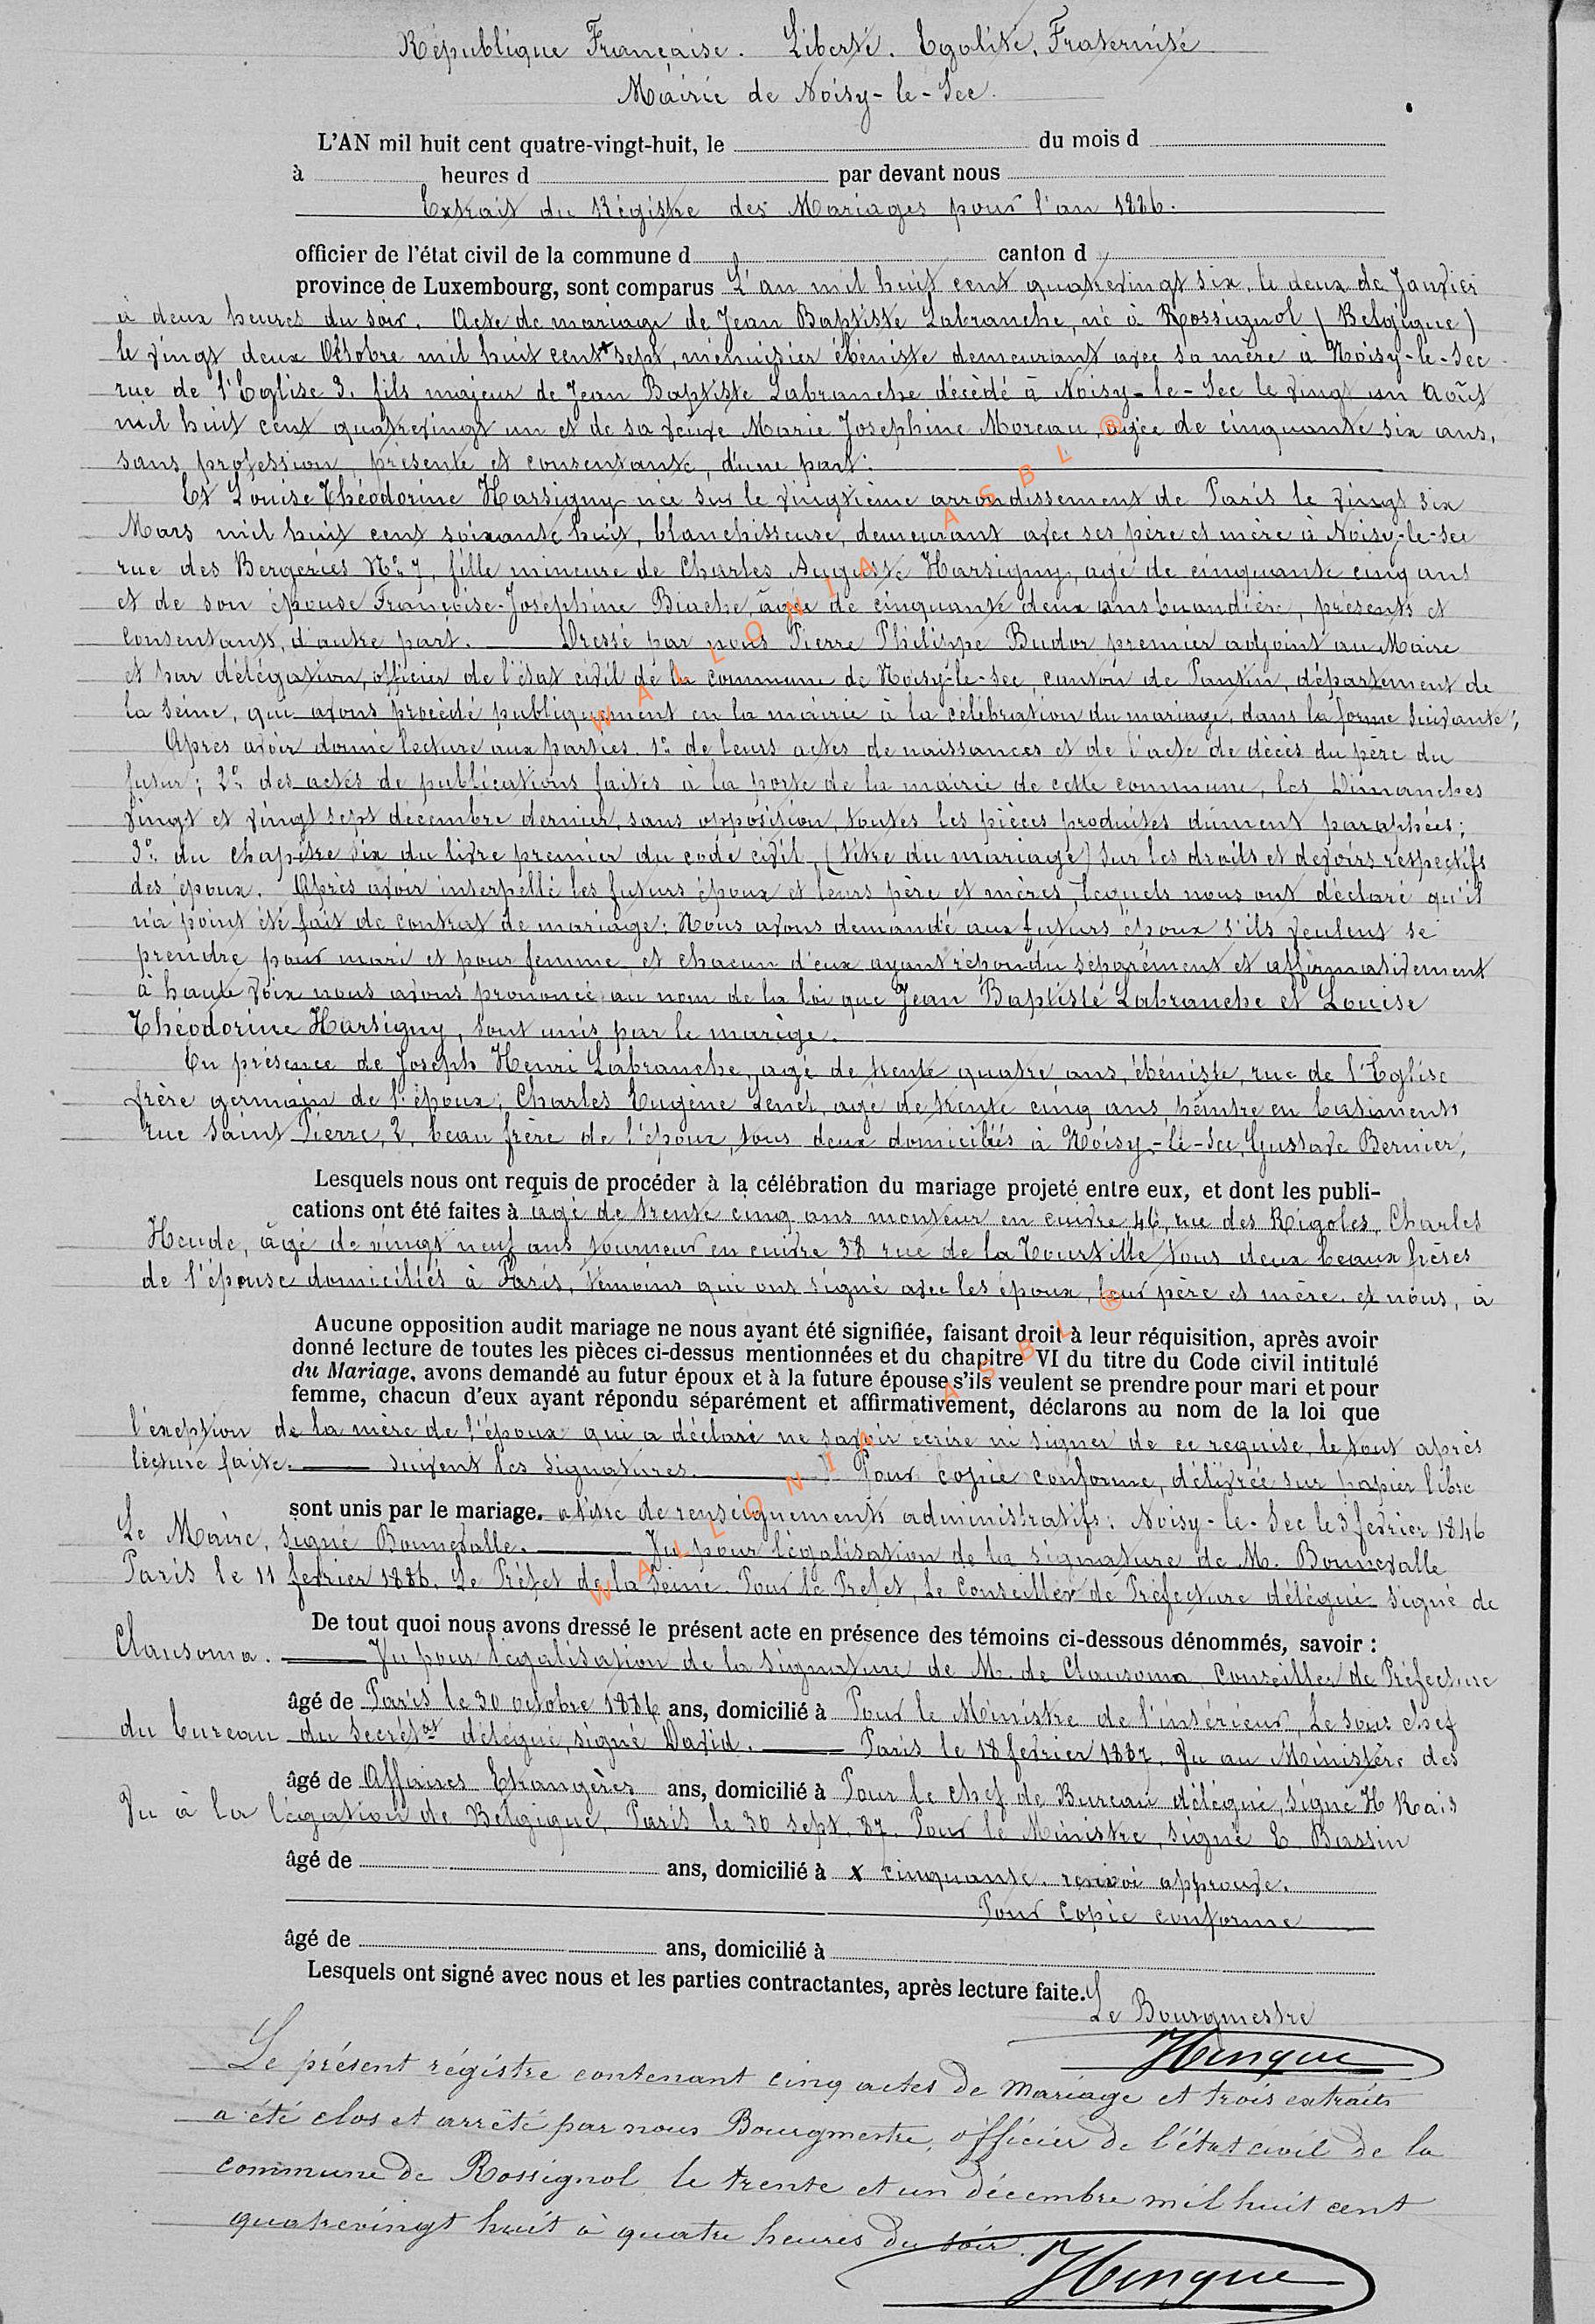 République Française. Liberté. Egalité, Fraternité
Mairie de Noisy-le-Sec.
L'AN mil huit cent quatre-vingt-huit, le du mois d
à heures d par devant nous
Extrait du Régistre des Mariages pour l'an 1886.
officier de l'état civil de la commune d canton d
province de Luxembourg, sont comparus L'an mil huit cent quatrevingt six, le deux de Janvier
à deux heures du soir. Acte de mariage de Jean Baptiste Labranche, né à Rossignol (Belgique)
le vingt deux Octobre mil huit cent x sept, menuisier ébéniste demeurant avec sa mère à Noisy-le-Sec
rue de l'Eglise 3, fils majeur de Jean Baptiste Labranche décédé à Noisy-le-Sec le vingt un Août
mil huit cent quatrevingt un et de sa veuve Marie Josephine Moreau, agée de cinquante six ans,
sans profession, présente et consentante, d'une part:
Et Louise Théodorine Harsigny née sur le vingtième arrondissement de Paris le vingt six
Mars mil huit cent soixante huit, blanchisseuse, demeurant avec ses père et mère à Noisy-le-Sec
rue des Bergeries No 7, fille mineure de Charles Auguste Harsigny, agé de cinquante cinq ans
et de son épouse Françoise-Joséphine Biache, âgée de cinquante deux ans buandière, présents et
consentants, d'autre part. Dressé par nous Pierre Philippe Budor premier adjoint au Maire
et par délégation, officier de l'état civil de la commune de Noisy-le-Sec, canton de Pantin, département de
la Seine, qui avons procédé publiquement en la mairie à la célébration du mariage, dans la forme suivante;
Après avoir donné lecture aux parties. 1o de leurs actes de naissances et de l'acte de décès du père du
futur; 2o des actes de publications faites à la porte de la mairie de cette commune, les Dimanches
vingt et vingt sept décembre dernier, sans opposition, toutes les pièces produites dûment paraphées;
3o du chapitre six du livre premier du code civil, (titre du mariage) sur les droits et devoirs respectifs
des époux. Après avoir interpellé les futurs époux et leurs père et mères, lequels nous ont déclaré qu'il
n'a point été fait de contrat de mariage: Nous avons demandé aux futurs époux s'ils veulent se
prendre pour mari et pour femme et chacun d'eux ayant répondu séparément et affirmativement
à haute voix nous avons prononcé au nom de la loi que Jean Baptiste Labranche et Louise
Théodorine Harsigny, sont unis par le mariège.
En présence de Joseph Henri Labranche, agé de trente quatre ans, ébéniste, rue de l'Eglise
frère germain de l'époux; Charles Eugène Lenet, agé de trente cinq ans, peintre en batiments
rue Saint Pierre, 2, beau frère de l'époux, tous deux domiciliés à Noisy-le-Sec, Gustave Bernier,
Lesquels nous ont requis de procéder à la célébration du mariage projeté entre eux, et dont les publi-
cations ont été faites à agé de trente cinq ans monteur en cuivre 46, rue des Rigoles, Charles
Heude, âgé de vingt neuf ans tourneur en cuivre 38 rue de la Tourtille tous deux beaux frères
de l'épouse domiciliés à Paris, témoins qui ont signé avec les époux, leur père et mère et nous, à
Aucune opposition audit mariage ne nous ayant été signifiée, faisant droit à leur réquisition, après avoir
donné lecture de toutes les pièces ci-dessus mentionnées et du chapitre VI du titre du Code civil intitulé
du Mariage, avons demandé au futur époux et à la future épouse s'ils veulent se prendre pour mari et pour
femme, chacun d'eux ayant répondu séparément et affirmativement, déclarons au nom de la loi que
l'exeption de la mère de l'époux qui a déclaré ne savoir écrire ni signer de ce requise, le tout après
lecture faite. suivent les signatures. Pour copie conforme, délivrée sur papier libre
sont unis par le mariage. a titre de renseignements administratifs: Noisy-le-Sec le 3 fevrier 1846
Le Maire, signé Bonnevalle. Vu pour légalisation de la signature de M. Bonnevalle
Paris le 11 fevrier 1886. Le Préfet de la Seine. Pour le Prefet, Le Conseiller de Préfecture délégué signé de
De tout quoi nous avons dressé le présent acte en présence des témoins ci-dessous dénommés, savoir :
Clausoma. Vu pour légalisation de la signature de M. de Clausoma Conseiller de Préfecture
âgé de Paris le 30 octobre 1886 ans, domicilié à Pour le Ministre de l'intérieur, Le sous chef
du bureau du Secrétat délégué, signé David. Paris le 18 fevrier 1887. Vu au Ministère des
âgé de Affaires Etrangères ans, domicilié à Pour le chef de Bureau délégué, signé H Rais
Vu à la légation de Belgique, Paris le 30 sept. 87. Pour le Ministre, signé E. Bassin
âgé de ans, domicilié à x cinquante. renvoi approuvé.
Pour copie conforme
âgé de ans, domicilié à
Lesquels ont signé avec nous et les parties contractantes, après lecture faite.
Le Bourgmestre
Hinque
Le présent régistre contenant cinq actes de mariage et trois extraits
a été clos et arrêté par nous Bourgmestre, officier de l'état civil de la
commune de Rossignol le trente et un décembre mil huit cent
quatrevingt huit à quatre heures du soir.
Hinque
WALLONIA ASBL ®
WALLONIA ASBL ®